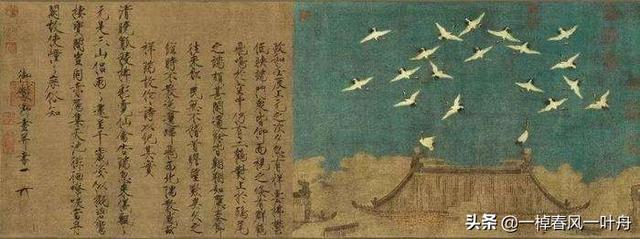 政和壬辰上元之次夕忽有祥雲拂鬱
低映端門眾皆仰而視之倏有群鶴
飛鳴於空中仍有二鶴對止於鴟尾
之端頗甚閒適餘皆翱翔如應奏節
往來都民無不稽首瞻望歎異久之
經時不散迤邐歸飛西北隅散感茲
祥瑞故作詩以紀其實
清曉觚稜拂彩霓仙禽告瑞忽來儀飄飄
元是三山侶兩兩還呈千歲姿似擬碧鸞
棲寶閣豈同赤鴈集天池徘徊嘹唳當丹
闕故使憧憧庶俗知
御製御畫并書
头条 @一棹春风一叶舟